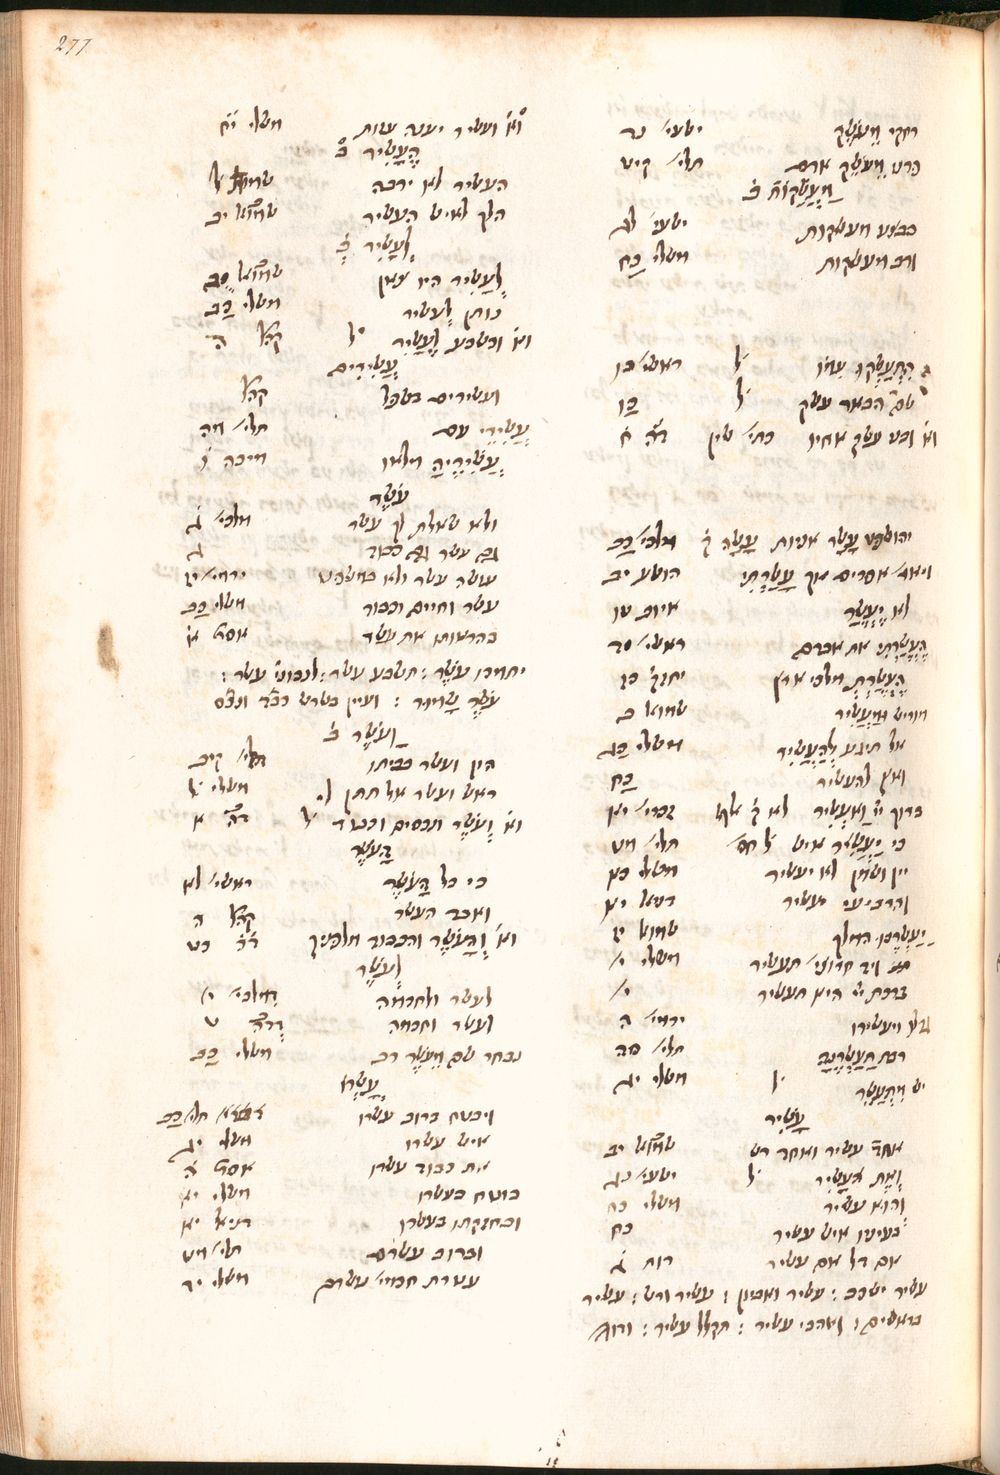 277
רחקי מֵעֹשֶׁק ישעי׳ נד
הרט מֵעֹשֶׁק אדם תלי׳ קיט
מַעֲשַׁקּוֹת ב׳
בבצע מעשקות ישעי׳ לג
ורב מעשקות משלי כח
הִתְעַשְּׂקוּ עִמּוֹ ל׳ ראשי׳ כו
שם הבאר עשק ל׳ כו
יהושפט עָשָׂר אניות מלכי׳ כב
ויאמר אפרים אך עָשַׁרְתִּי הושע יב
לא יֶעְשַׁר איוב טו
הֶעֱשַׁרְתִּי את אברם ראשי׳ יד
הֶעֱשַׁרְתְּ מלכי ארץ יחזק׳ כז
מוריש וּמַעֲשִׁיר שמוא׳ ב
אל תיגע לְהַעֲשִׁיר משלי כג
ואץ להעשיר כח
ברוך יי׳ וַאעְשִׁיר זכרי׳ יא
כי יַעֲשִׁר איש תלי׳ מט
יין ושמן לא יעשיר משלי כא
והרביעי יעשיר דניאל יא
יַעְשְׁרֶנּוּ המלך שמוא׳ יז
ויד חרוצי׳ תעשיר משלי י׳
ברכת יי׳ היא תעשיר י׳
ויעשירו ירמי׳ ה
רבת תַּעְשְׁרֶנָּה תלי׳ סה
יש מִתְעַשֵּׁר ל׳ משלי יג
עָשִׁיר
אחד עשיר ואחד רש שמוא׳ יב
וְאֶת עָשִׁיר ל׳ ישעי׳ נג
והוא עשיר משלי כח
בעיניו איש עשיר כח
אם דל אם עשיר רות ג
עשיר ישכב : עשיר ואביון : עשיר ורש : עשיר
בראשים : תקלל עשיר :
וא׳ ועשיר יענה עזות משלי יח
הֶעָשִׁיר ב׳
העשיר לא ירבה שמות ל
הלך לאיש העשיר שמוא׳ יב
לְעָשִׁיר ב׳
לְעָשִׁיר היו צאן שמוא׳ יב
נותן לעשיר משלי כב
וא׳ והשבע לֶעָשִׁיר ל׳ קהל׳ ה
עֲשִׁירִים
ועשירים בשפל קהל׳
עֲשִׁירֵי עם תלי׳ מה
עֲשִׁירֶיהָ מלאו מיכה ו
עֹשֶׁר
ולא שאלת לך עשר מלכי׳ ג
גם עשר גם כבוד ג
עושה עשר ולא במשפט ירמי׳ יז
עשר וחיים וכבוד משלי כב
בהראותו את עשר אסת׳ א
יתמכו עֹשֶׁר : תשבע עשר : לנבוני׳ עשר :
עֹשֶׁר שָׁמוּר :
וְעֹשֶׁר ב׳
הון ועשר בביתו תלי׳ קיב
ראש ועשר אל תתן לי משלי ל
וא׳ וְעֹשֶׁר ונכסים וכבוד ל׳ דה׳ א
הָעֹשֶׁר
כי כל הָעֹשֶׁר ראשי׳ לא
ואבד העשר קהל׳ ה
וא׳ וְהָעֹשֶׁר והכבוד מלפניך דה׳ כט
לְעֹשֶׁר
לעשר ולחכמה מלכי׳ י׳
לעשר וחכמה דה׳ ט
נבחר שם מֵעֹשֶׁר רב משלי כב
עָשְׁרוֹ
ויבטח ברוב עשרו תלי׳
איש עשרו משלי יג
את כבוד עשרו אסת׳ ה
בוטח בעשרו משלי יא
ובחזקתו בעשרו דניאל יא
וברוב עשרם תלי׳ מט
עטרת חכמי׳ עשרם משלי יד